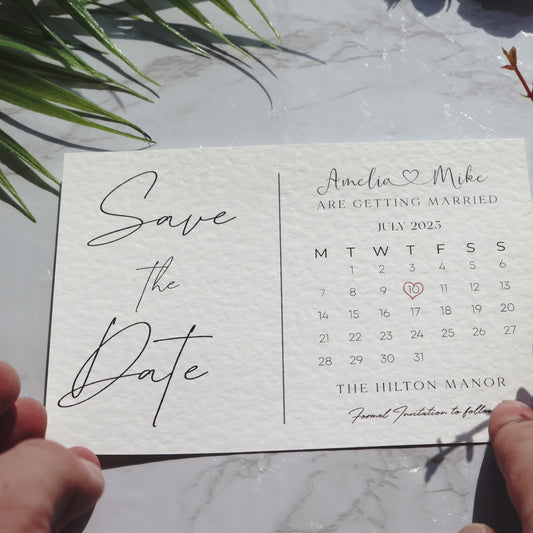 Save
the
Date
Amelia Mike
ARE GETTING MARRIED
JULY 2025
M T W T F S S
1 2 3 4 5 6
7 8 9 10 11 12 13
14 15 16 17 18 19 20
21 22 23 24 25 26 27
28 29 30 31
THE HILTON MANOR
Formal Invitation to follow